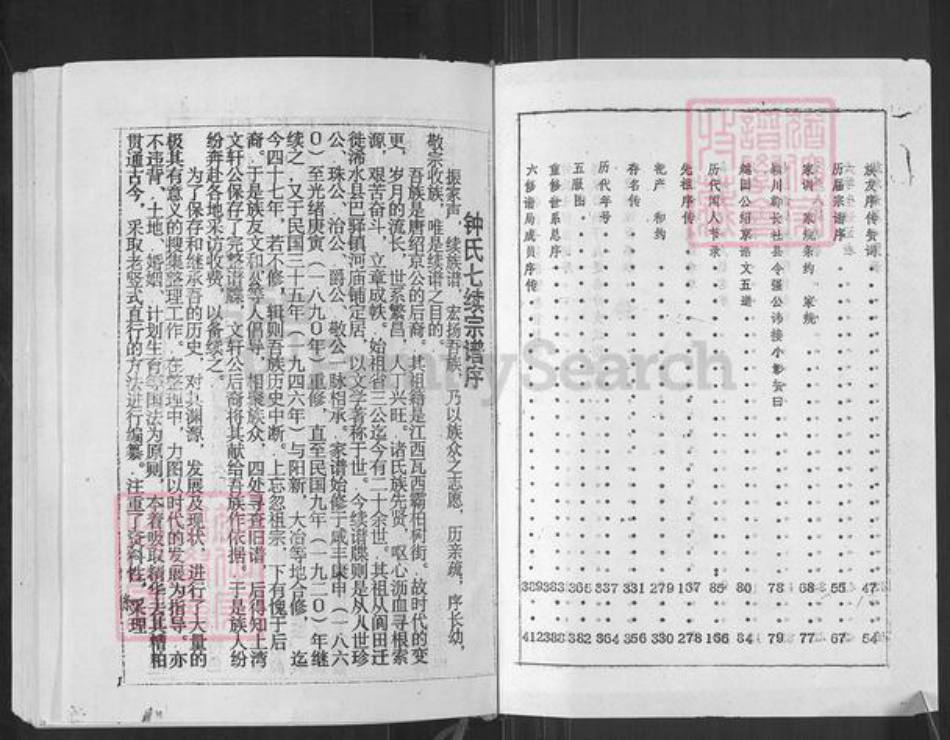 族友序传赞词 47 54
历届宗谱序 55 67
家训 家规条约 家统 68 77
颍川郡长社县令强公讳接小影赞曰 78 79
越国公绍京诰文五道 80 84
历代闻人节录 85 166
先祖序传 167 278
祀产 和约 279 330
存名传 331 356
历代年号 337 364
五服图 365 382
重修世系总序 383 388
六修谱局成员序传 389 412
钟氏七续宗谱序
振家声，续族谱，宏扬吾族，乃以族众之志愿，历亲疏，序长幼，
敬宗收族，唯是续谱之目的。
吾族是唐绍京公的后裔。其祖籍是江西瓦西霸柏树街。故时代的变
更，岁月的流长，世系繁昌，人丁兴旺，诸氏族先贤，呕心沥血寻根索
源，艰苦奋斗，立章成帙。始祖省三公迄今有二十余世。其祖从阆田迁
徙浠水县巴驿镇河庙铺定居，以文学著称于世。今续谱牒则是从八世珍
公、珠公、治公、爵公、敬公一脉相承。家谱始修于咸丰庚申（一八六
０）至光绪庚寅（一八九０年）重修，直至民国九年（一九二０）年继
续之，又于民国三十五年（一九四六年）与阳新，大冶等地合修，迄
今四十七年，若不修，辑则吾族历史中断。上忘忽祖宗，下有愧于后
裔，于是族友文和公等人倡导，相聚族众，四处寻查旧谱，后得知上湾
文轩公保存了完整谱牒，文轩公后裔将其献给吾族作依据。于是族人纷
纷奔赴各地采访收费，以备续之。
为了保存和继承吾的历史，对其渊源，发展及现状，进行了大量的
极其有意义的搜集整理工作。在整理中，力图以时代的发展为指导。亦
不违背，土地、婚姻、计划生育等国法为原则，本着吸取精华去其糟粕
贯通古今，采取老竖式直行的方法进行编纂。注重了资料性，采理
FamilySearch